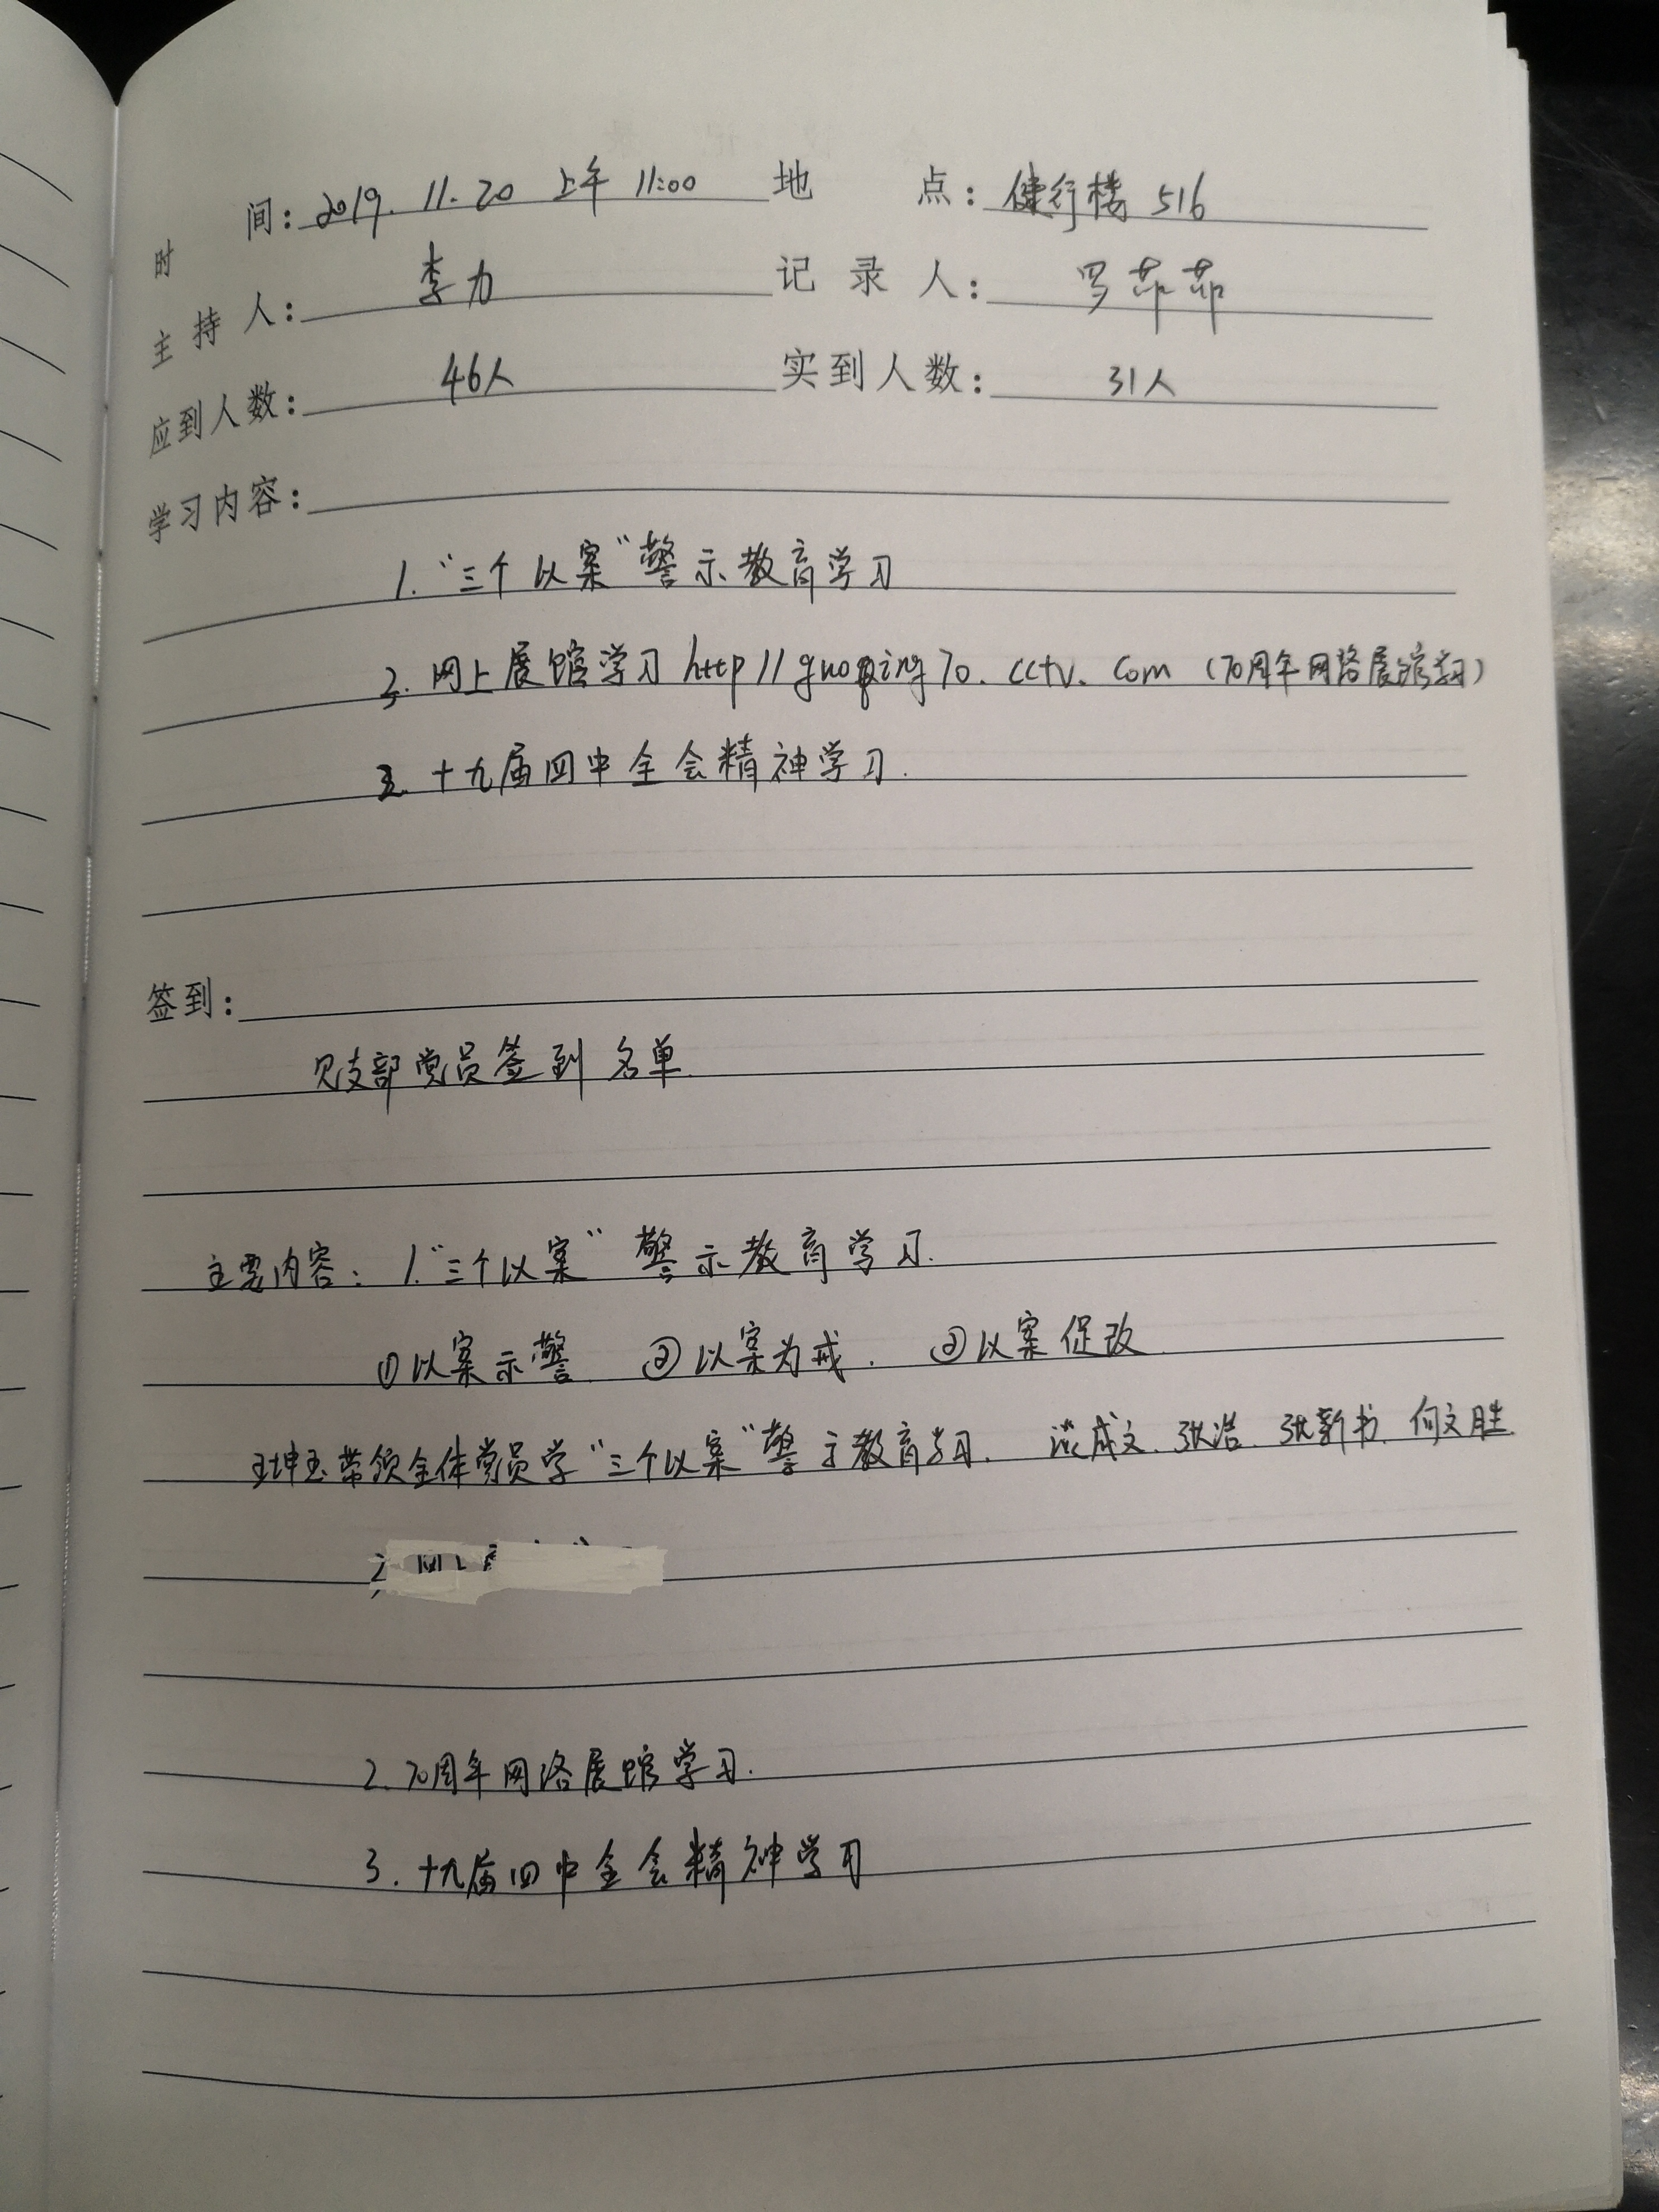 时间：2019.11.20 上午 11:00 地点：健行楼 516
主持人：李力 记录人：罗茹茹
应到人数：46人 实到人数：31人
学习内容：
1.“三个以案”警示教育学习
2.网上展馆学习 http//guoqing70.cctv.com（70周年网络展馆学习）
3.十九届四中全会精神学习.
签到：
见支部党员签到名单.
主要内容：1.“三个以案”警示教育学习.
①以案示警. ②以案为戒. ③以案促改
王坤玉带领全体党员学“三个以案”警示教育学习. 成文.张浩.张新书.何文胜.
2.网上
2.70周年网络展馆学习.
3.十九届四中全会精神学习